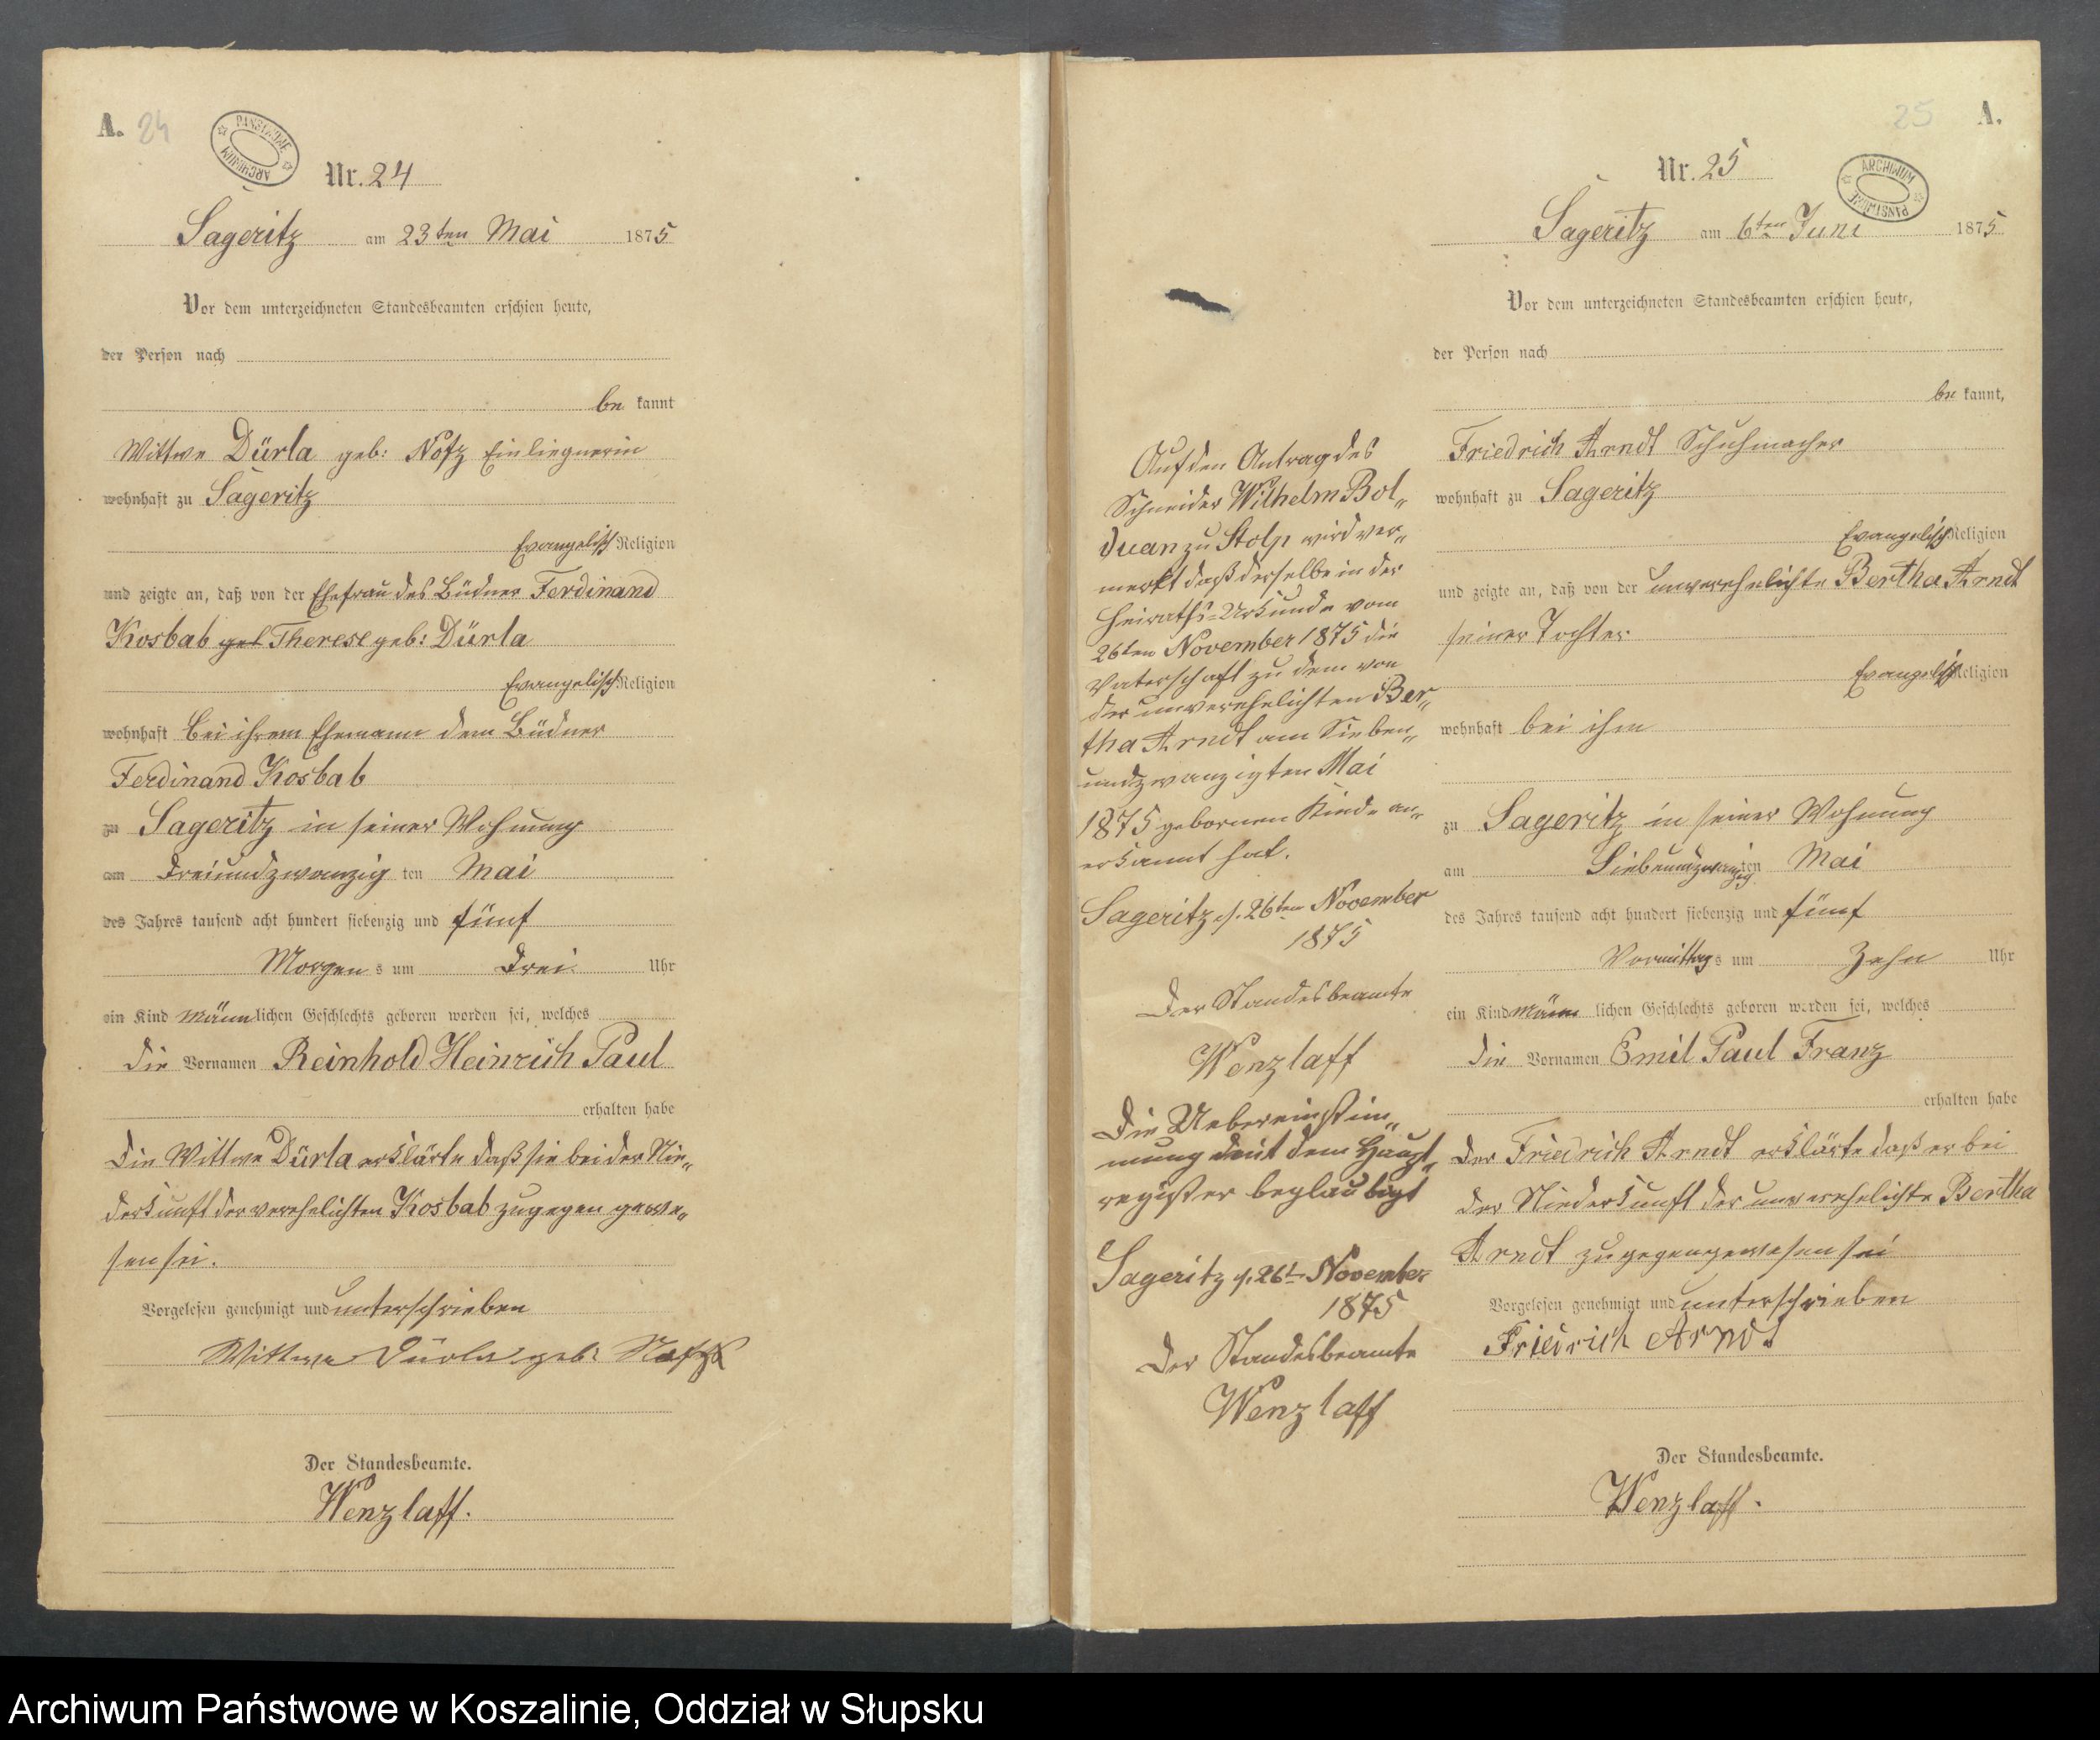 A. 24
PAŃSTWOWE ARCHIWUM
Nr. 24
Sageritz am 23ten Mai 1875
Vor dem unterzeichneten Standesbeamten erschien heute,
der Person nach
be kannt
Wittwe Dürla geb: Notz Einliegnerin
wohnhaft zu Sageritz
Evangelisch Religion
und zeigte an, daß von der Ehefrau des Büdner Ferdinand
Kosbab geb Therese geb: Dürla
Evangelisch Religion
wohnhaft bei ihrem Ehemann dem Büdner
Ferdinand Kosbab
zu Sageritz in seiner Wohnung
am Dreiundzwanzig ten Mai
des Jahres tausend acht hundert siebenzig und fünf
Morgen s um Drei Uhr
ein Kind männlichen Geschlechts geboren worden sei, welches
die Vornamen Reinhold Heinrich Paul
erhalten habe
Die Wittwe Dürla erklärte daß sie bei der Nie„
derkunft der verehelichten Kosbab zugegen gewe„
sen sei.
Vorgelesen genehmigt und unterschrieben
Wittwe Dürla geb:
Der Standesbeamte.
Wenzlaff.
25 A.
Nr. 25
ARCHIWUM PAŃSTWOWE
Sageritz am 6ten Juni 1875
Vor dem unterzeichneten Standesbeamten erschien heute,
der Person nach
be kannt,
Friedrich Arndt Schuhmacher
wohnhaft zu Sageritz
Evangelisch Religion
und zeigte an, daß von der unverehelichte Bertha Arndt
seiner Tochter
Evangelisch Religion
wohnhaft bei ihm
zu Sageritz in seiner Wohnung
am Siebenundzwanzig ten Mai
des Jahres tausend acht hundert siebenzig und fünf
Vormittags um Zehn Uhr
ein Kind männ lichen Geschlechts geboren worden sei, welches
die Vornamen Emil Paul Franz
erhalten habe
Der Friedrich Arndt erklärte daß er bei
der Niederkunft der unverehelichte Bertha
Arndt zugegengewesen sei
Vorgelesen genehmigt und unterschrieben
Friedrich Arndt
Der Standesbeamte.
Wenzlaff.
Auf den Antrag des
Schneider Wilhelm Bol„
duan zu Stolp wird ver„
merkt daß derselbe in der
Heiraths-Urkunde vom
26ten November 1875 die
Vaterschaft zu dem von
der unverehelichten Ber„
tha Arndt am Sieben„
undzwanzigten Mai
1875 gebornen Kinde an„
erkannt hat.
Sageritz d. 26ten November
1875
Der Standesbeamte
Wenzlaff
Die Uebereinstim„
mung mit dem Haupt„
register beglaubigt
Sageritz d. 26t November
1875
Der Standesbeamte
Wenzlaff
Archiwum Państwowe w Koszalinie, Oddział w Słupsku